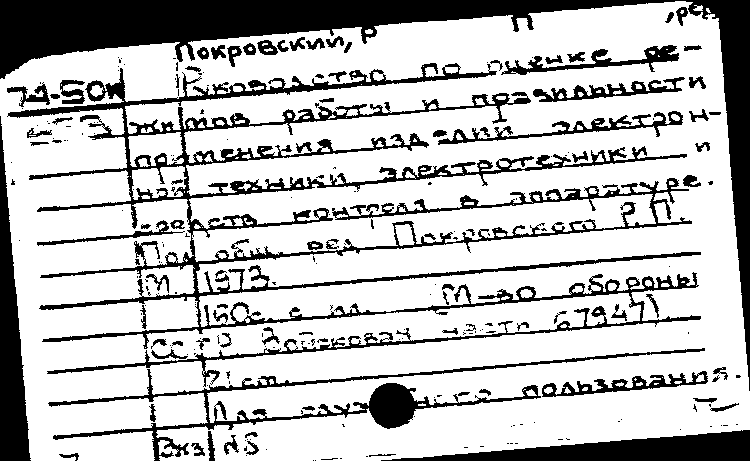 Покровский, Р П ,ред.
74-50к Руководство по оценке ре-
жимов работы и правильности
применения изделий электрон-
ной техники, электротехники и
средств контроля в аппаратуре.
Под общ. ред Покровского Р.П.
М., 1973.
160с. с ил. (М-во обороны
СССР Войсковая часть 67947).
21 см.
Для служебного пользования.
Экз N8